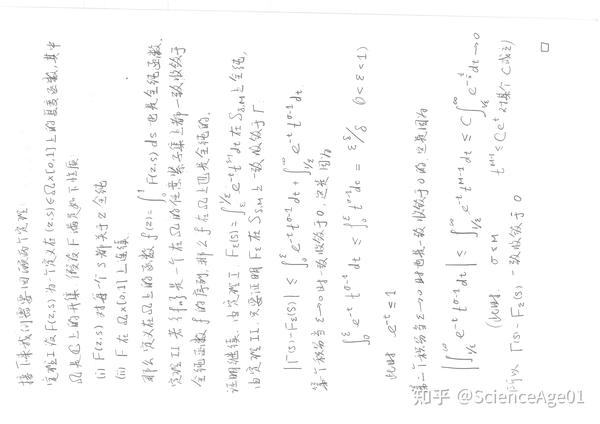 接下来我们需要回顾两个定理.
定理I 设F(z,s)为一个定义在(z,s)∈Ω×[0,1]上的复函数,其中
Ω是ℂ上的开集. 假设F满足如下性质
(i) F(z,s)对每一个s都关于z全纯
(ii) F在Ω×[0,1]上连续.
那么定义在Ω上的函数 f(z)=∫₀¹ F(z,s)ds 也是全纯函数.
定理II 若{fₙ}是一个在Ω的任意紧子集上都一致收敛于
全纯函数f的序列,那么f在Ω上也是全纯的.
证明继续,由定理I Fε(s)=∫_ε^{1/ε} e^{-t}t^{s-1}dt 在S_{δ,M}上全纯,
由定理II,只要证明Fε在S_{δ,M}上一致收敛于Γ.
|Γ(s)-Fε(s)| ≤ ∫₀^ε e^{-t}t^{σ-1}dt + ∫_{1/ε}^∞ e^{-t}t^{σ-1}dt
第一个积分当ε→0时一致收敛于0.这是因为
∫₀^ε e^{-t}t^{σ-1}dt ≤ ∫₀^ε t^{δ-1}dt = ε^δ/δ 0<ε<1)
此时 e^{-t}≤1
第二个积分当ε→0时也是一致收敛于0的 这是因为
|∫_{1/ε}^∞ e^{-t}t^{σ-1}dt| ≤ ∫_{1/ε}^∞ e^{-t}t^{M-1}dt ≤ C∫_{1/ε}^∞ e^{-t/2}dt→0
(此时 σ≤M t^{M-1}≤Ce^{t/2} 对某个C成立)
所以 Γ(s)-Fε(s) 一致收敛于0
□
知乎 @ScienceAge01